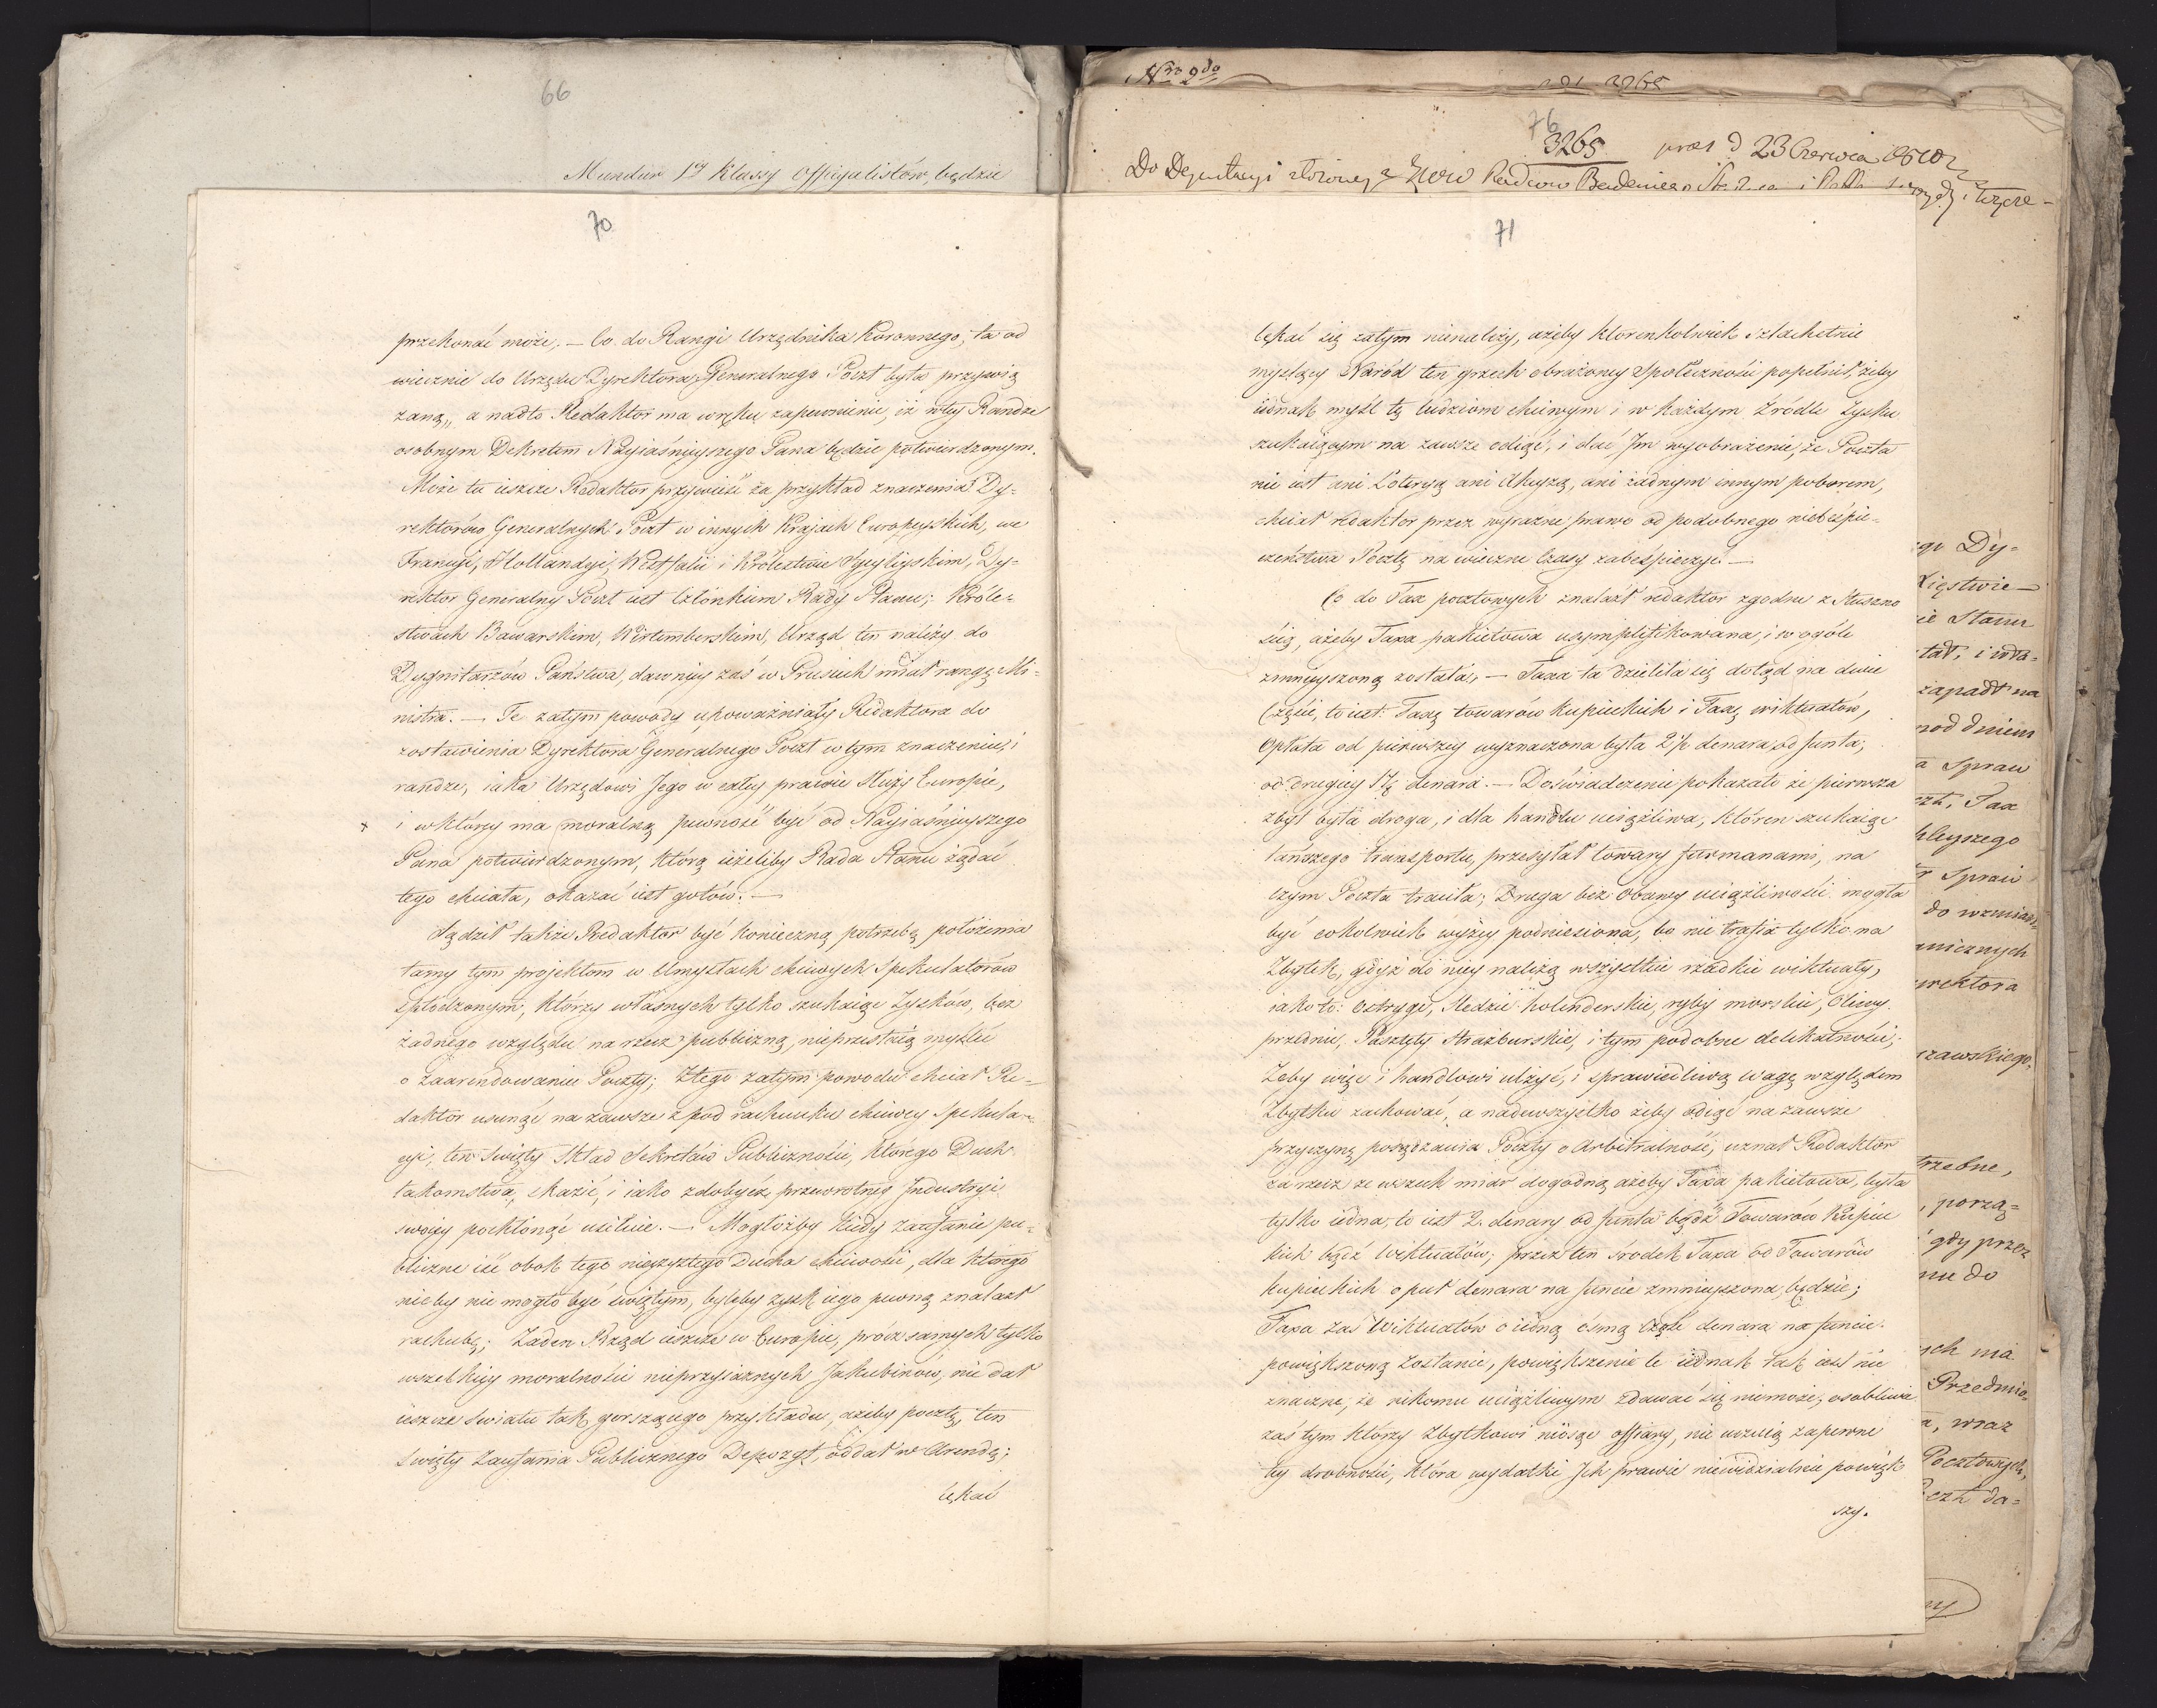 66
Mundur 1ey Klassy Officyalistów, będzie
70
przekonać może. — Co do Rangi Urzędnika Koronnego, ta od
wiecznie do Urzędu Dyrektora Generalnego Poczt była przywią
zaną, a nadto Redaktor ma w ręku zapewnienie, iż w tey Randze
osobnym Dekretem Nayiaśnieyszego Pana będzie potwierdzonym.
Może tu ieszcze Redaktor przywieść za przykład znaczenia Dy-
rektorów Generalnych Poczt w innych Krajach Europeyskich, we
Francyi, Hollandyi, Westfalii i Królestwie Sycylijskim, Dy-
rektor Generalny Poczt iest Członkiem Rady Stanu; Króle-
stwach Bawarskim, Wirtemberskim, Urząd ten należy do
Dygnitarzów Państwa, dawniey zaś w Prusiech miał rangę Mi-
nistra. — Te zatym powody upoważniały Redaktora do
zostawienia Dyrektora Generalnego Poczt w tym znaczeniu, i
randze, iaka Urzędowi Jego w całey prawie służy Europie,
i w którey ma moralną pewność być od Nayiaśnieyszego
Pana potwierdzonym, którą ieżeliby Rada Stanu żądać
tego chciała, okazać iest gotów. —
Sądził także Redaktor być konieczną potrzebą położenia
tamy tym projektom w Umysłach chciwych Spekulatorów
spłodzonym, którzy własnych tylko szukaiąc Zysków, bez
żadnego względu na rzecz publiczną, nieprzestaią myśleć
o zaarendowaniu Poczty; Ztego zatym powodu chciał Re-
daktor usunąć na zawsze z pod rachunku chciwey Spekula-
cyi, ten Swięty Skład Sekretów Publiczności, którego Duch
łakomstwa, skazić, i iako zdobycz przewrotney Industryi
swoiey pochłonąć usiłuie. — Mogłożby kiedy zaufanie pu-
bliczne iść obok tego nieczystego Ducha chciwości, dla którego
nicby nie mogło być świętym, byleby zysk iego pewną znalazł
rachubę; Zaden Rząd ieszcze w Europie, prócz samych tylko
wszelkiey moralności nieprzyiaznych Jakubinów, nie dał
ieszcze światu tak gorszącego przykładu, ażeby pocztę, ten
Święty Zaufania Publicznego Depozyt, oddał w Arendę;
lękać
Nro 9do
3265
76
3265 præs d 23 Czerwca 1810
Do Deputacyi złożoney z
71
lękać się zatym nienależy, ażeby którenkolwiek szlachetnie
myślący Naród ten grzech obrażoney Społeczności popełnił, żeby
iednak myśl tę ludziom chciwym i w każdym źródle Zysku
szukaiącym na zawsze odiąć, i dać Im wyobrażenie, że Poczta
nie iest ani Loteryą ani Akcyzą, ani żadnym innym poborem,
chciał redaktor przez wyraźne prawo od podobnego niebespie-
czeństwa Pocztę na wieczne Czasy zabespieczyć. —
Co do Tax pocztowych znalazł redaktor zgodne z Słuszno
ścią, ażeby Taxa pakietowa usymplifikowana, i w ogóle
zmnieyszoną została. — Taxa ta dzieliła się dotąd na dwie
Części, to iest: Taxę towarów kupieckich i Taxę wiktuałów,
Opłata od pierwszey wyznaczona była 2½ denara od funta;
od drugiey denara. — Doświadczenie pokazało że pierwsza
zbyt była droga, i dla handlu uciążliwa, któren szukaiąc
tańszego transportu, przesyłał towary furmanami, na
czym Poczta traciła; Druga bez obawy uciążliwości mogła
być cokolwiek wyżey podniesiona, bo nie trafia tylko na
Zbytek, gdyż do niey należą wszystkie rzadkie wiktuały,
iako to: Ostrygi, Sledzie holenderskie, ryby morskie, Oliwy
przednie, Pasztety Strazburskie, i tym podobne delikatności;
Zeby więc i handlowi ulżyć, i sprawiedliwą wagę względem
Zbytku zachować, a nadewszystko żeby odiąć na zawsze
przyczynę posądzania Poczty o Arbitralność; uznał Redaktor
za rzecz ze wszech miar dogodną ażeby Taxa pakietowa, była
tylko iedna, to iest 2. denary od funta bądź Towarów Kupiec
kich bądź Wiktuałów; przez ten środek Taxa od Towarów
kupieckich o puł denara na funcie zmnieyszona będzie;
Taxa zaś Wiktuałów o iedną osmą część denara na funcie
powiększoną zostanie, powiększenie te iednak tak iest nie
znaczne, że nikomu uciążliwym zdawać się niemoże, osobliwie
zaś tym którzy Zbytkowi niosąc offiary, nie uczuią zapewne
tey drobności, która wydatki Ich prawie niewidzialnie powięk
szy.
Dy-
Xięstwie
Stanu
zapadł na
pod dniem
Spraw
Tax
Spraw
do wzmian
rektora
trzebne,
, porzą-
gdy przez
nu do
ych ma
Przedmio
, wraz
Pocztowych,
da-